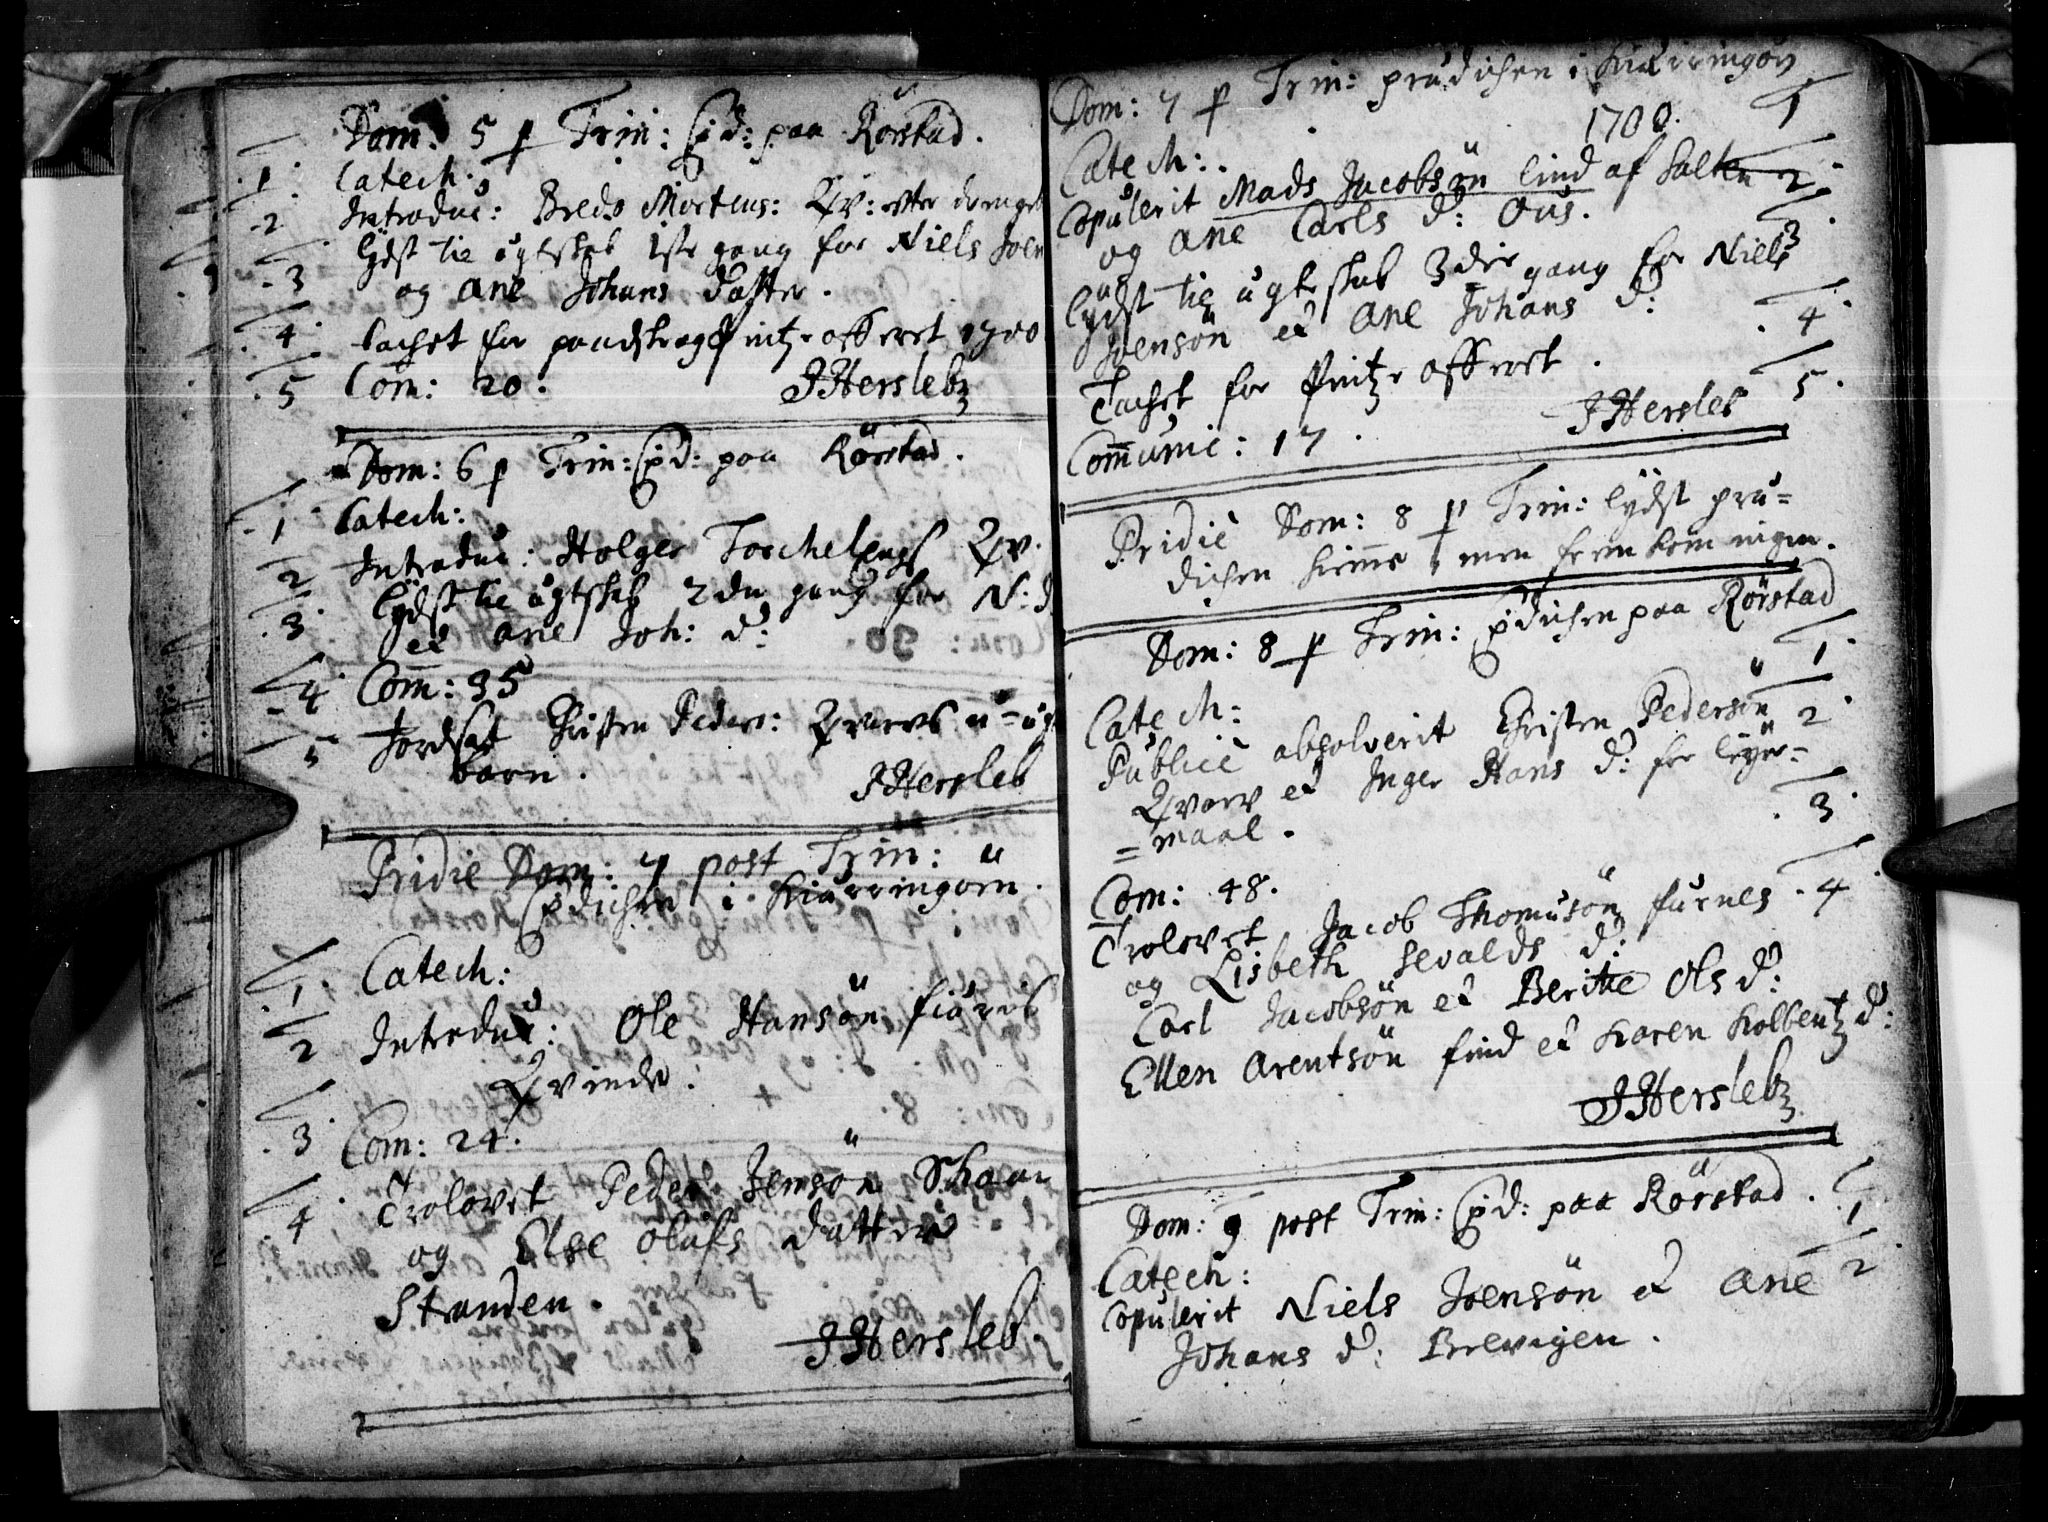 Dom: 5 p Trin: Pd: paa Rörstad.
1 Catech.
2 Introduc: Breds Mortens: Qv:
3 lydst til egteskab 1ste gang for Niels Joen
og Ane Johans datter.
4 tachet for offeret 1700
5 Com: 20: JHersleb
Dom: 6 p Trin: Pd: paa Rörstad.
1 Catech:
2 Introduc: Holger Torchelens Qv.
3 lydst til egteskab 2den gang for N:
et Ane Joh: d:
4 Com: 35
5 Jordsat Christen Peders: Qvarvs u=
barn.
JHersleb
Pridie Dom: 7 post Trin:
Prdichen i Kiærringöen.
1 Catech:
2 Introduc: Ole Hansön
Qvinde.
3 Com: 24.
4 Trolovet Peder Jensön Skaan
og Else Olufs datter
Stranden.
JHersleb.
Dom: 7 p Trin: prædichen i Kiæringöy
1700.
Catech: 1
Copulerit Mads Jacobsön lind af Salten 2
og Ane Carls d: Ous.
lydst til egteskab 3die gang for Niels 3
Joensön et Ane Johans d:
Tachet for offeret. 4
JHersleb
Communic: 17. 5
Pridie Dom: 8 p Trin: lydst præ=
dichen hiemme, men frem kom ingen.
Dom: 8 p Trin: Prdichen paa Rörstad
Catech: 1
Publice absolverit Christen Pedersön 2
Qvarv et Inger Hans d: for leyer=
=maal.
Com: 48. 3
Trolovet Jacob Thomesön furnes 4
og Lisbeth Sevalds d:
Carl Jacobsön et Beritte Ols d:
Ellen Arentsön find et Karen Kolbentz d:
JHersleb
Dom: 9 post Trin: Pd: paa Rörstad.
Catech: 1
Copulerit Niels Joensön et Ane 2
Johans d: Brevigen.